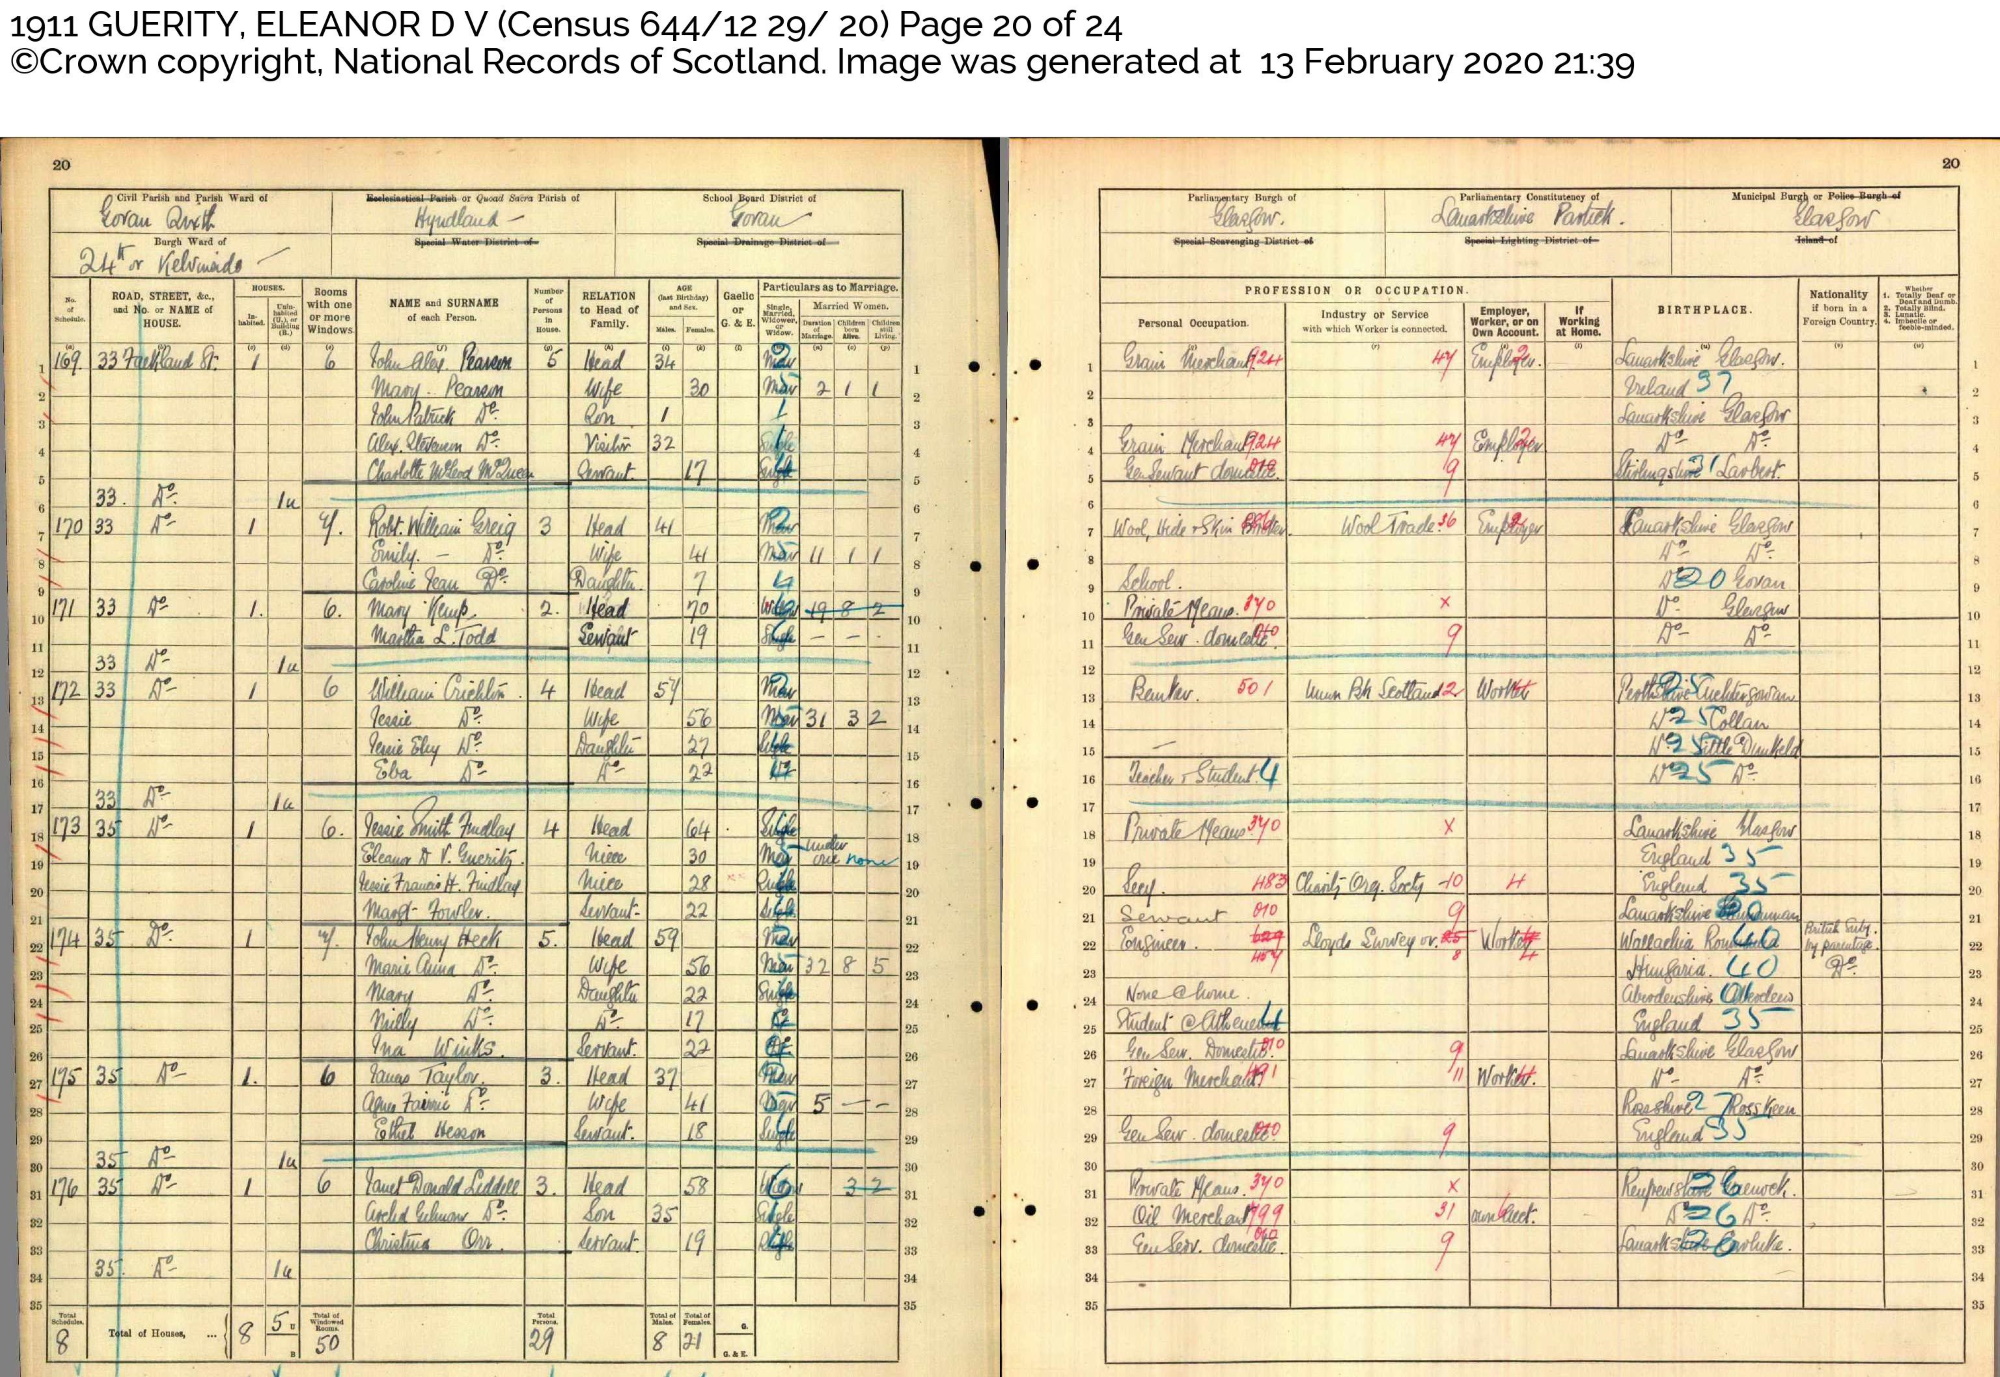 1911 GUERITY, ELEANOR D V (Census 644/12 29/ 20) Page 20 of 24
©Crown copyright, National Records of Scotland. Image was generated at 13 February 2020 21:39
20
Civil Parish and Parish Ward of
Govan
Ecclesiastical Parish or Quoad Sacra Parish of
Hyndland
School Board District of
Govan
Burgh Ward of
24th or Kelvinside
Special Water District of
Special Drainage District of
No. of Schedule.
ROAD, STREET, &c., and No. or NAME of HOUSE.
HOUSES.
Inhabited.
Uninhabited (U.), or Building (B.)
Rooms with one or more Windows.
NAME and SURNAME of each Person.
Number of Persons in House.
RELATION to Head of Family.
AGE (last Birthday) and Sex.
Males. Females.
Gaelic or G. & E.
Particulars as to Marriage.
Single, Married, Widower, or Widow.
Married Women.
Duration of Marriage. Children born Alive. Children still Living.
1 169 33 St. 1 6 John Alex. Pearson 5 Head 34 Mar
2 Mary Pearson Wife 30 Mar 2 1 1
3 John Patrick Do. Son 1
4 Alex. Stevenson Do. Visitor 32 Single
5 Charlotte McLeod McQueen Servant 17 Single
6 33 Do. 1u
7 170 33 Do. 1 7 Robt. William Greig 3 Head 41 Mar
8 Emily Do. Wife 41 Mar 11 1 1
9 Caroline Jean Do. Daughter 7
10 171 33 Do. 1 6 Mary Kemp 2 Head 70 Widow 19 8 2
11 Martha L. Todd Servant 19 Single – – –
12 33 Do. 1u
13 172 33 Do. 1 6 William Crichton 4 Head 57 Mar
14 Jessie Do. Wife 56 Mar 31 3 2
15 Jessie Do. Daughter 27 Single
16 Do. Do. 22 Do.
17 33 Do. 1u
18 173 35 Do. 1 6 Jessie Smith Findlay 4 Head 64 Single
19 Eleanor D V. Guerity Niece 30 Mar under one none
20 Jessie Francis H. Findlay Niece 28 Single
21 Margt Fowler Servant 22 Single
22 174 35 Do. 1 7 John Henry Heck 5 Head 59 Mar
23 Marie Anna Do. Wife 56 Mar 32 8 5
24 Mary Do. Daughter 22 Single
25 Milly Do. Do. 17 Do.
26 Ina Winks Servant 22 Do.
27 175 35 Do. 1 6 James Taylor 3 Head 37 Mar
28 Agnes Fairrie Do. Wife 41 Mar 5 – –
29 Ethel Servant 18 Single
30 35 Do. 1u
31 176 35 Do. 1 6 Janet Donald Liddell 3 Head 58 Widow 3 2
32 Archd Do. Son 35 Single
33 Christina Orr Servant 19 Single
34 35 Do. 1u
35
Total Schedules. 8
Total of Houses, ... 8 5 U B
Total of Windowed Rooms. 50
Total Persons. 29
Total of Males. 8
Total of Females. 21
G.
G. & E.
20
Parliamentary Burgh of
Glasgow.
Parliamentary Constituency of
Lanarkshire Partick.
Municipal Burgh or Police Burgh of
Glasgow
Special Scavenging District of
Special Lighting District of
Island of
PROFESSION OR OCCUPATION.
Personal Occupation.
Industry or Service with which Worker is connected.
Employer, Worker, or on Own Account.
If Working at Home.
BIRTHPLACE.
Nationality if born in a Foreign Country.
Whether 1. Totally Deaf or Deaf and Dumb. 2. Totally Blind. 3. Lunatic. 4. Imbecile or feeble-minded.
1 Grain Merchant 924 47 Employer Lanarkshire Glasgow.
2 Ireland 37
3 Lanarkshire Glasgow
4 Grain Merchant 924 47 Employer Do. Do.
5 Gen Servant domestic 9 Stirlingshire 31 Larbert.
6
7 Wool, Hide & Skin Broker Wool Trade 36 Employer Lanarkshire Glasgow
8 Do. Do.
9 School. Do. 20 Govan
10 Private Means. 370 x Do. Glasgow
11 Gen Serv. domestic 9 Do. Do.
12
13 Banker. 501 Union Bk Scotland 2 Worker Perthshire
14 Do. 25
15 — Do. 25 Little Dunkeld
16 Teacher & Student 4 Do. 25 Do.
17
18 Private Means 370 x Lanarkshire Glasgow
19 England 35
20 Secy. 483 Charity Org. Socty 10 4 England 35
21 Servant 010 9 Lanarkshire
22 Engineer Lloyds Surveyor 25 8 Worker 4 Wallachia 40 British Subj. by parentage
23 Hungaria. 40 Do.
24 None @ home. Aberdeenshire Aberdeen
25 Student @ Athenaeum England 35
26 Gen Ser. Domestic 010 9 Lanarkshire Glasgow
27 Foreign Merchant 11 Worker Do. Do.
28 Rosshire 27 Rosskeen
29 Gen Ser. domestic 010 9 England 35
30
31 Private Means. 370 x Renfrewshire Greenock.
32 Oil Merchant 799 31 own acct. Do. 26 Do.
33 Gen Serv. domestic 9 Lanarkshire Carluke.
34
35